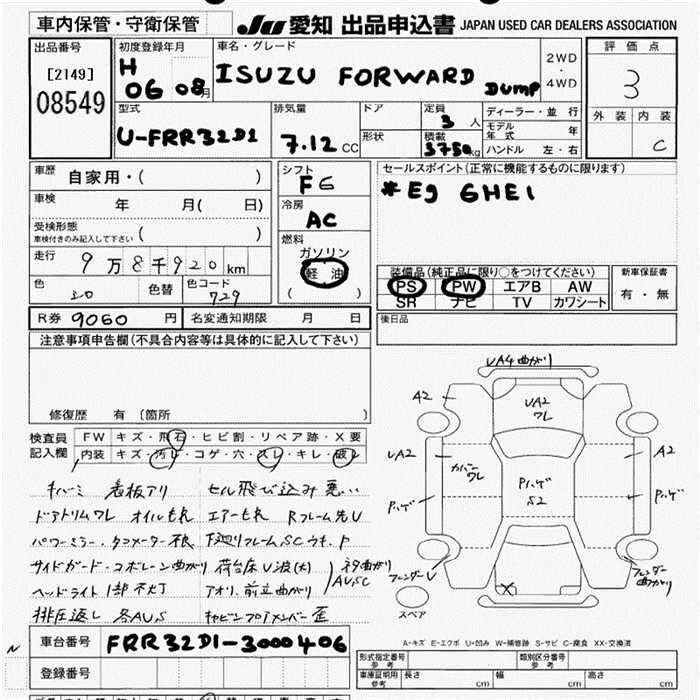 車内保管・守衛保管
JU 愛知 出品申込書 JAPAN USED CAR DEALERS ASSOCIATION
出品番号
[2149]
08549
初度登録年月
H
06 08月
車名・グレード
ISUZU FORWARD DUMP
2WD
・
4WD
評価点
3
外装 内装
C
型式
U-FRR32D1
排気量
7.12 CC
ドア
形状
定員
3 人
積載
3750kg
ディーラー・並行
モデル年式 年
ハンドル 左・右
車歴
自家用・( )
車検
年 月( 日)
受検形態
車検付きのみ記入して下さい ( )
走行
9万8千920km
色
シロ
色替
色コード
729
シフト
F6
冷房
AC
燃料
ガソリン
軽油
( )
セールスポイント(正常に機能するものに限ります)
*Eg 6HE1
装備品(純正品に限り○をつけてください)
PS PW エアB AW
SR ナビ TV カワシート
新車保証書
有・無
後日品
R券 9060 円
名変通知期限 月 日
注意事項申告欄(不具合内容等は具体的に記入して下さい)
修復歴 有 〔箇所 〕
検査員
記入欄
FW キズ・飛石・ヒビ割・リペア跡・X要
内装 キズ・汚レ・コゲ・穴・スレ・キレ・破レ
キバミ 看板アリ セル飛び込み悪い
ドアトリムワレ オイルもれ エアーもれ Rフレーム先U
パワーミラー・タコメーター不良 下廻りフレームSC
サイドガード・コボレーン曲がり 荷台床U波(大)
ヘッドライト1部不灯 アオリ、前立曲がり
AU,SC
排圧返し 各AU,S キャビンフロアメンバー歪
UA4曲がり
A2
UA2
ワレ
UA2
カバーワレ
Pハゲ
S2
A2
Pハゲ
Pハゲ
フェンダーU
フェンダー曲がり
X
スペア
A-キズ E-エクボ U-凹み W-補修跡 S-サビ C-腐食 XX-交換済
N
車台番号
FRR32D1-3000406
登録番号
形式指定番号
参考
類別区分番号
参考
車庫証明用
参考
長さ cm 幅 cm 高さ cm